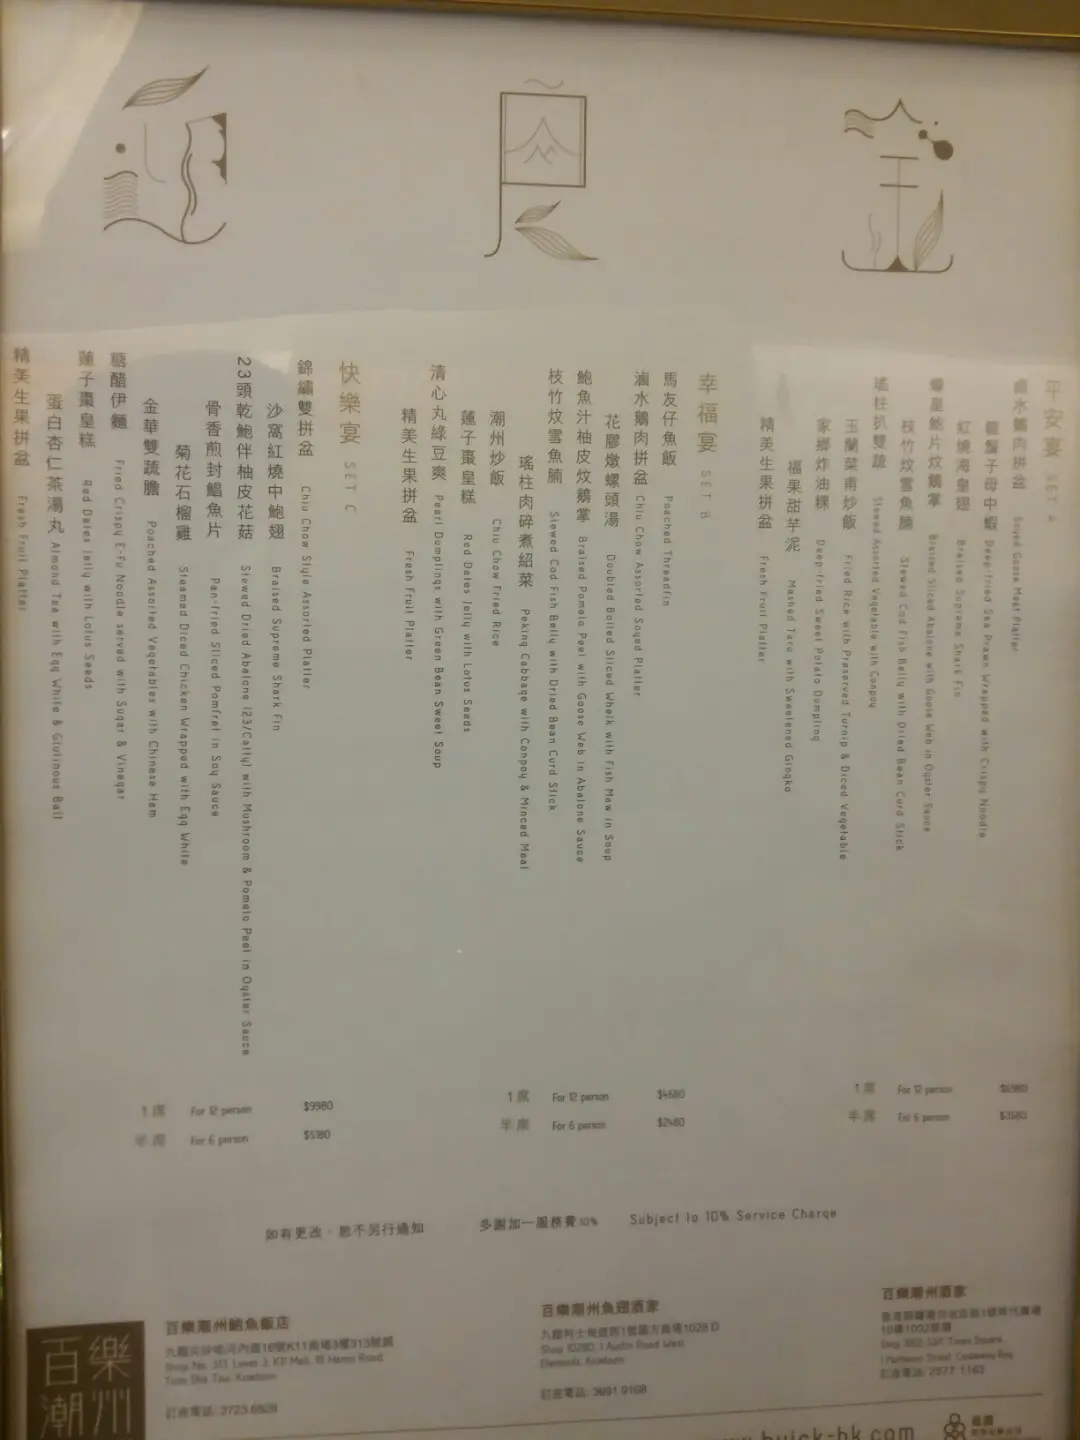 平安宴 SET A
鹵水鵝肉拼盆 Soyed Goose Meat Platter
龍鬚子母中蝦 Deep-fried Sea Prawn Wrapped with Crispy Noodle
紅燒海皇翅 Braised Supreme Shark Fin
鮑片炆鵝掌 Braised Sliced Abalone with Goose Web in Oyster Sauce
枝竹炆雪魚腩 Stewed Cod Fish Belly with Dried Bean Curd Stick
瑤柱扒雙蔬 Stewed Assorted Vegetable with Conpoy
玉蘭菜甫炒飯 Fried Rice with Preserved Turnip & Diced Vegetable
家鄉炸油粿 Deep-fried Sweet Potato Dumpling
福果甜芋泥 Mashed Taro with Sweetened Gingko
精美生果拼盆 Fresh Fruit Platter
1席 For 12 person $6980
半席 For 6 person $3580
幸福宴 SET B
馬友仔魚飯 Poached Threadfin
滷水鵝肉拼盆 Chiu Chow Assorted Soyed Platter
花膠燉螺頭湯 Doubled Boiled Sliced Whelk with Fish Maw in Soup
鮑魚汁柚皮炆鵝掌 Braised Pomelo Peel with Goose Web in Abalone Sauce
枝竹炆雪魚腩 Stewed Cod Fish Belly with Dried Bean Curd Stick
瑤柱肉碎煮紹菜 Peking Cabbage with Conpoy & Minced Meat
潮州炒飯 Chiu Chow Fried Rice
蓮子棗皇糕 Red Dates Jelly with Lotus Seeds
清心丸綠豆爽 Pearl Dumplings with Green Bean Sweet Soup
精美生果拼盆 Fresh Fruit Platter
1席 For 12 person $4680
半席 For 6 person $2480
快樂宴 SET C
錦繡雙拼盆 Chiu Chow Style Assorted Platter
沙窩紅燒中鮑翅 Braised Supreme Shark Fin
23頭乾鮑伴柚皮花菇 Stewed Dried Abalone (23/Catty) with Mushroom & Pomelo Peel in Oyster Sauce
骨香煎封鯧魚片 Pan-fried Sliced Pomfret in Soy Sauce
菊花石榴雞 Steamed Diced Chicken Wrapped with Egg White
金華雙蔬膽 Poached Assorted Vegetables with Chinese Ham
糖醋伊麵 Fried Crispy E-Fu Noodle served with Sugar & Vinegar
蓮子棗皇糕 Red Dates Jelly with Lotus Seeds
蛋白杏仁茶湯丸 Almond Tea with Egg White & Glutinous Ball
精美生果拼盆 Fresh Fruit Platter
1席 For 12 person $9980
半席 For 6 person $5180
如有更改，恕不另行通知 多謝加一服務費10% Subject to 10% Service Charge
百樂潮州
百樂潮州鮑魚飯店
九龍尖沙咀河內道18號K11商場3樓313號舖
Shop No. 313, Level 3, K11 Mall, 18 Hanoi Road
Tsim Sha Tsui, Kowloon
訂座電話: 2723 6828
百樂潮州魚翅酒家
九龍柯士甸道西1號圓方商場1028 D
Shop 1028D, 1 Austin Road West
Elements, Kowloon
訂座電話: 3691 9168
百樂潮州酒家
香港銅鑼灣勿地臣街1號時代廣場
10樓1002號舖
Times Square,
1 Matheson Street, Causeway Bay
訂座電話: 2577 1163
buick-hk.com